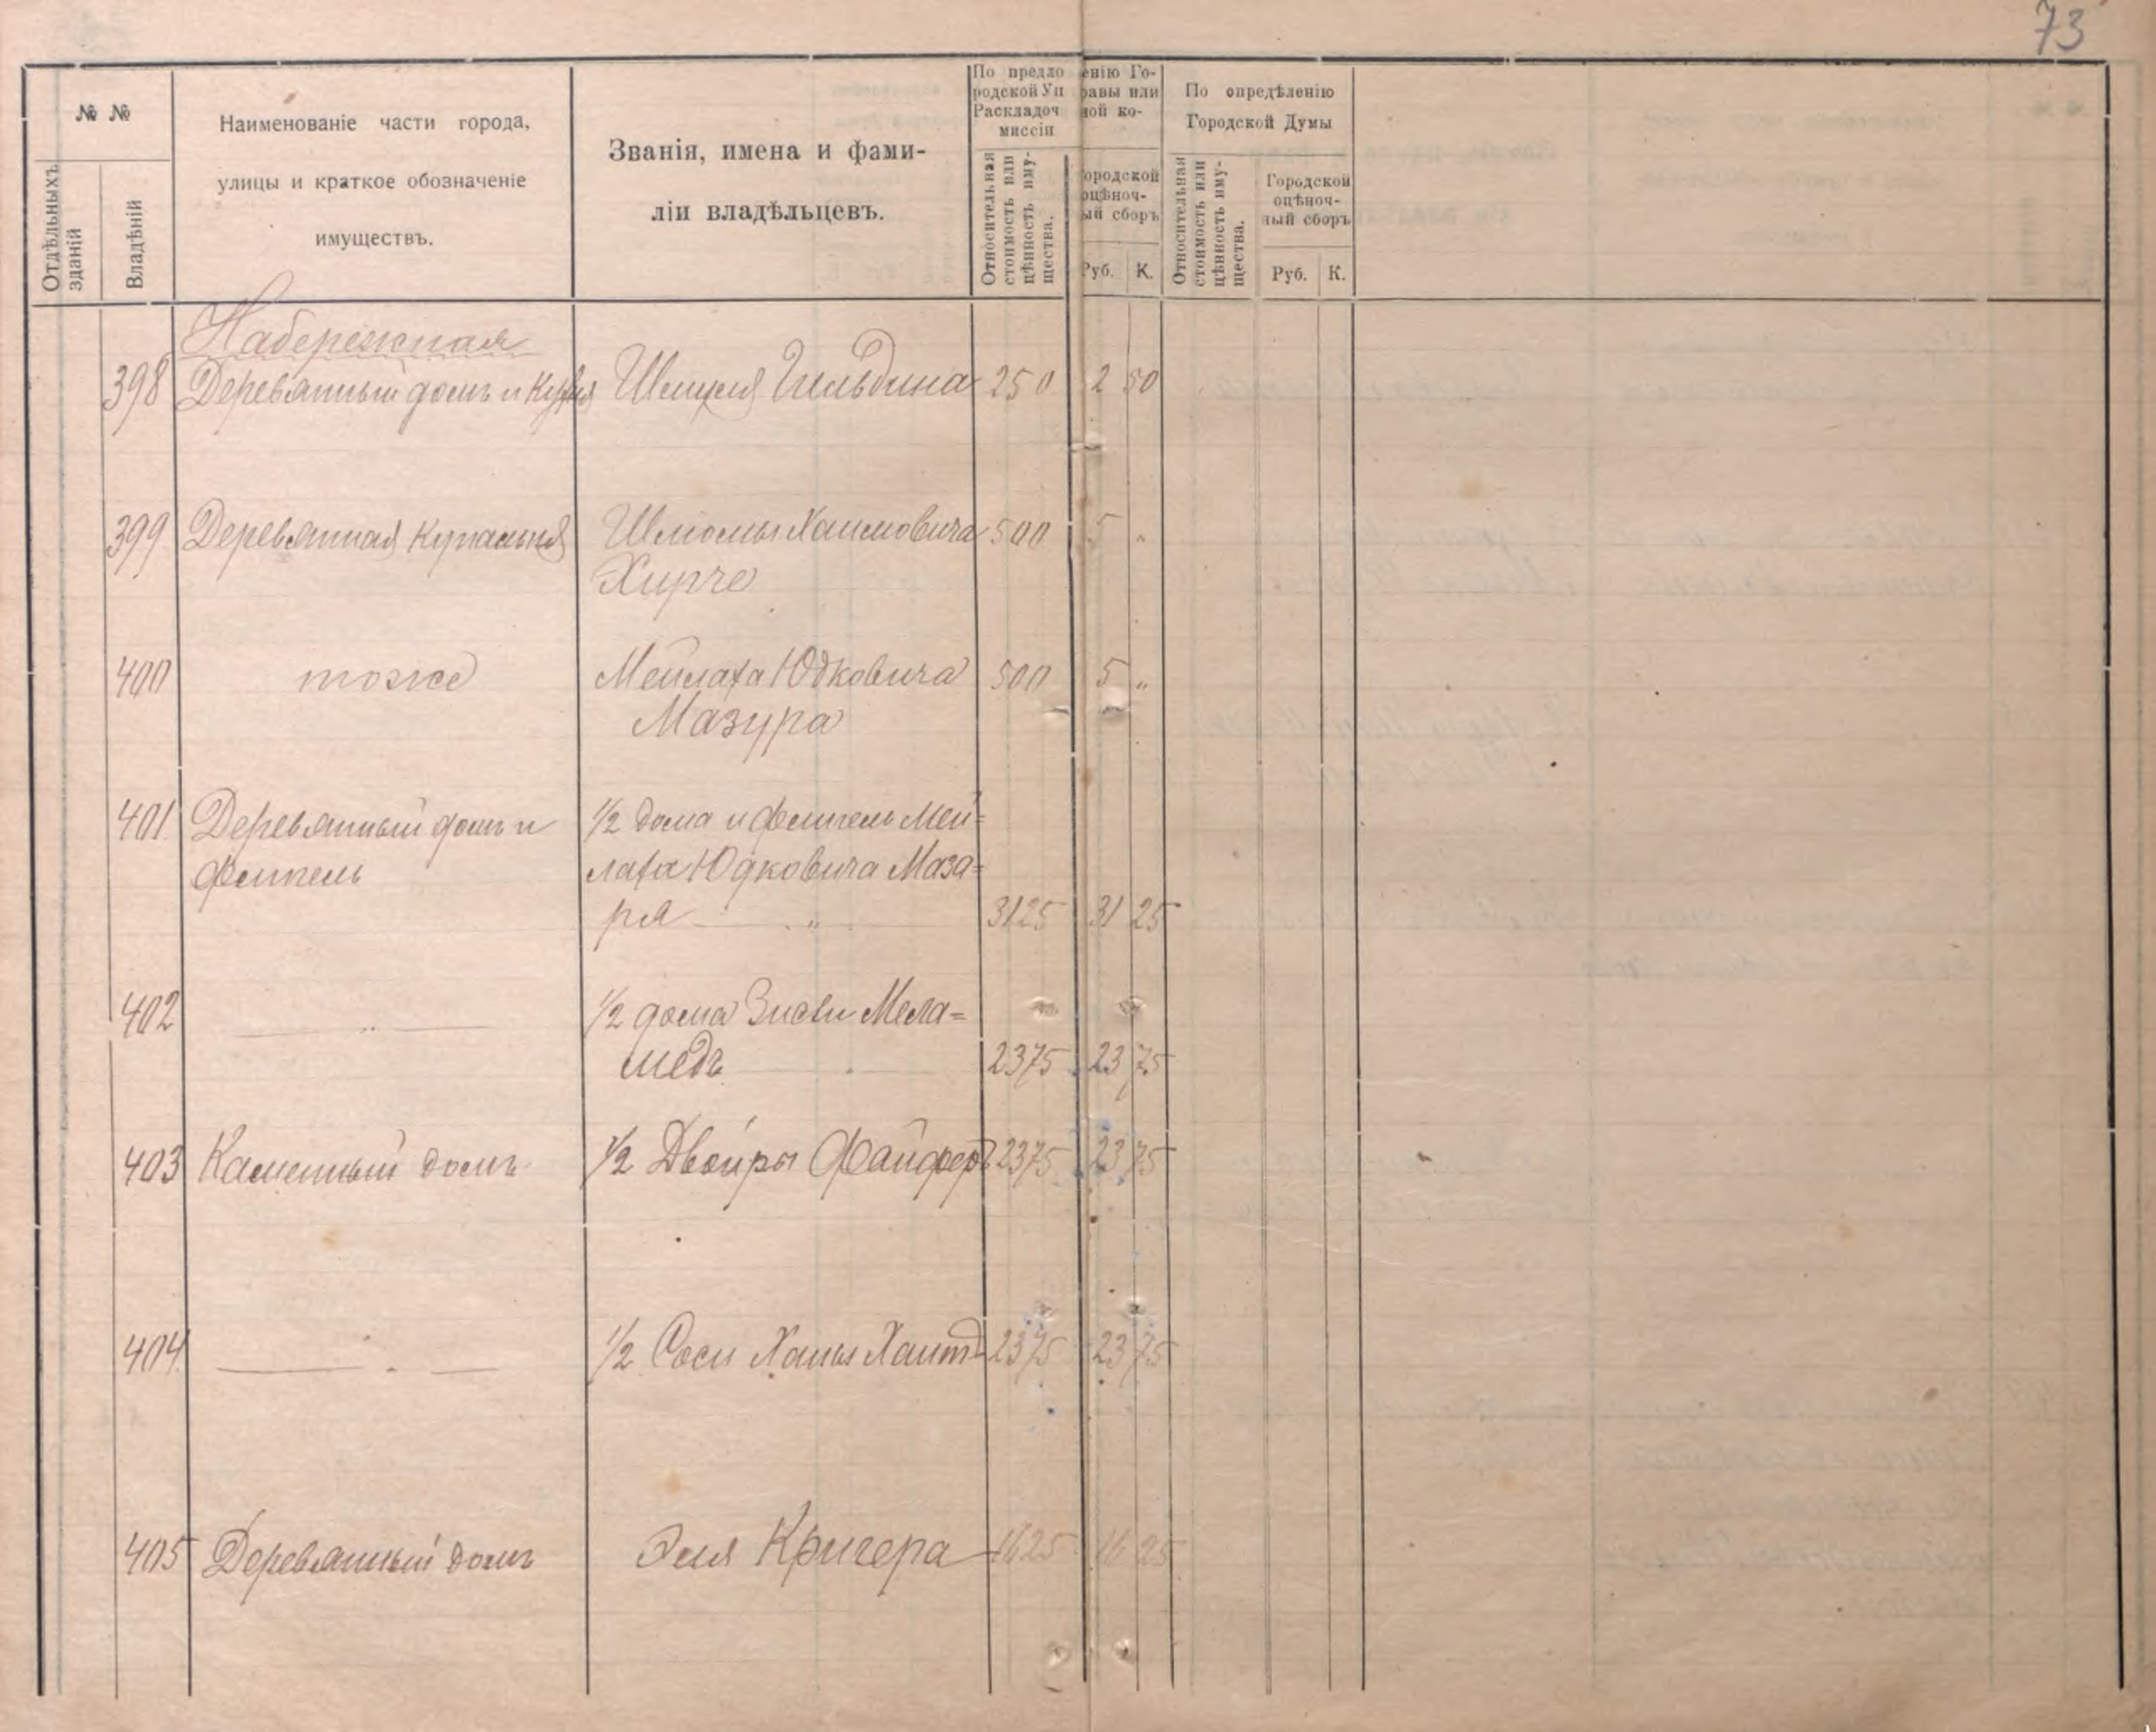 73
№ №
Отдѣльныхъ зданій
Владѣній
Наименованіе части города,
улицы и краткое обозначеніе
имуществъ.
Званія, имена и фами-
ліи владѣльцевъ.
По предло енію Го-
родской Уп равы или
Раскладоч ной ко-
миссіи
Относительная
стоимость или
цѣнность иму-
щества.
ородской
оцѣноч-
ый сборъ
Руб. К.
По опредѣленію
Городской Думы
Относительная
стоимость или
цѣнность иму-
щества.
Городской
оцѣноч-
ный сборъ
Руб. К.
Набережная
398 Деревянный домъ и Шмуля Гильдина 250 2 50
399 Деревянная купальня Шломы Хаимовича 500 5 "
Хирче
400 тоже Мейлаха Юдковича 500 5 "
Мазура
401 Деревянный домъ и ½ дома и флигель Мей=
флигель лаха Юдковича Маза=
ря " 3125 31 25
402 " ½ дома Зиси Мела=
медъ 2375 23 75
403 Каменный домъ ½ Двойры Файфер 2375 23 75
404 " ½ Соси Ханы 2375 23 75
405 Деревянный домъ Эля Кригера 1625 16 25